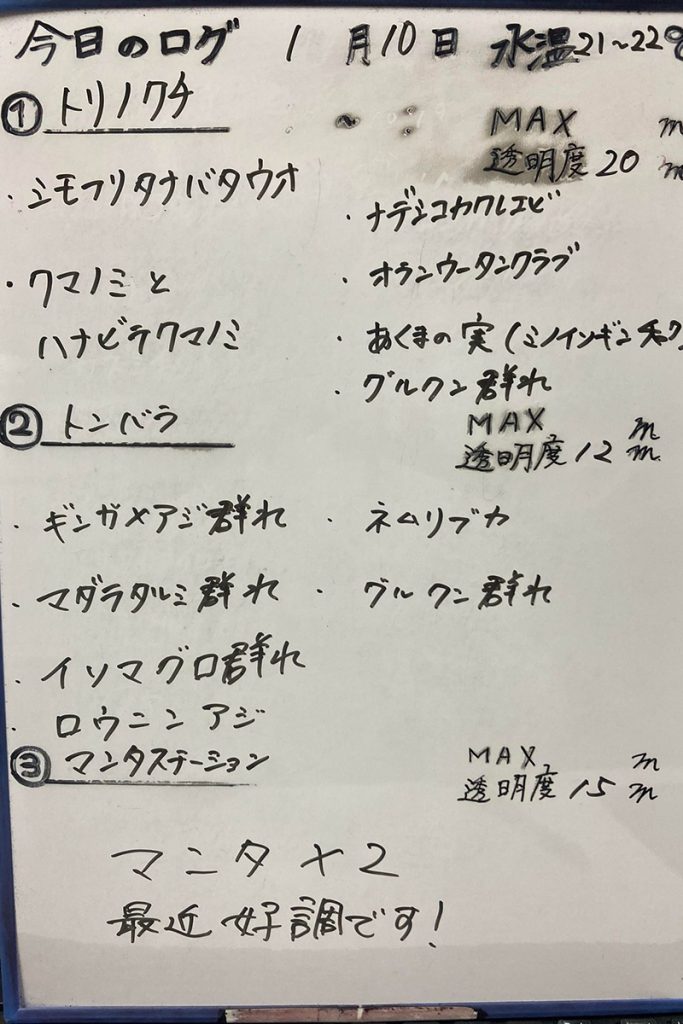 今日のログ 1月10日 水温21~22℃
① トリノクチ
MAX m
透明度 20 m
・シモフリタナバタウオ
・クマノミと
ハナビラクマノミ
・ナデシコカクレエビ
・オランウータンクラブ
・あくまの実(ミノイソギンチャク)
・グルクン群れ
② トンバラ
MAX m
透明度 12 m
・ギンガメアジ群れ
・マダラタルミ群れ
・イソマグロ群れ
・ロウニンアジ
・ネムリブカ
・グルクン群れ
③ マンタステーション
MAX m
透明度 15 m
マンタ×2
最近好調です!